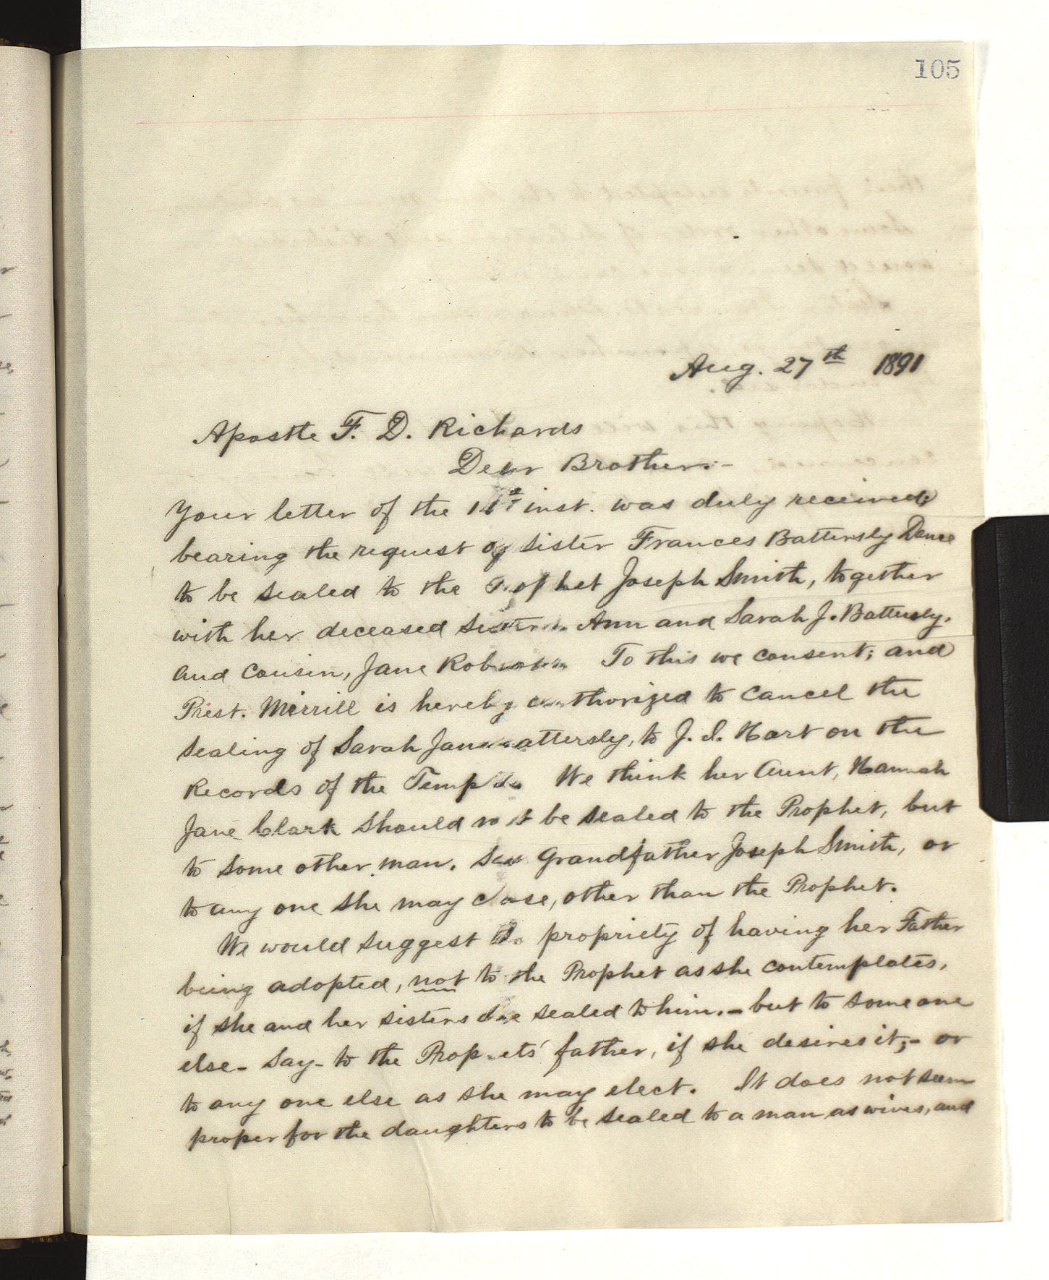 105
Aug. 27th 1891
Apostle F. D. Richards
Dear Brother:-
Your letter of the inst. was duly received
bearing the request of Sister Frances Battersby Dance
to be sealed to the Prophet Joseph Smith, together
with her deceased sisters Ann and Sarah J. Battersby,
and cousin, Jane Robinson. To this we consent; and
Prest. Merrill is hereby authorized to cancel the
sealing of Sarah Jane Battersby, to J. I. Hart on the
Records of the Temple. We think her Aunt, Hannah
Jane Clark should not be sealed to the Prophet, but
to some other man. Say Grandfather Joseph Smith, or
to any one she may chose, other than the Prophet.
We would suggest the propriety of having her Father
being adopted, not to the Prophet as she contemplates,
if she and her sisters are sealed to him.- but to someone
else- say- to the Prophets' father, if she desires it;- or
to any one else as she may elect. It does not seem
proper for the daughters to be sealed to a man as wives, and